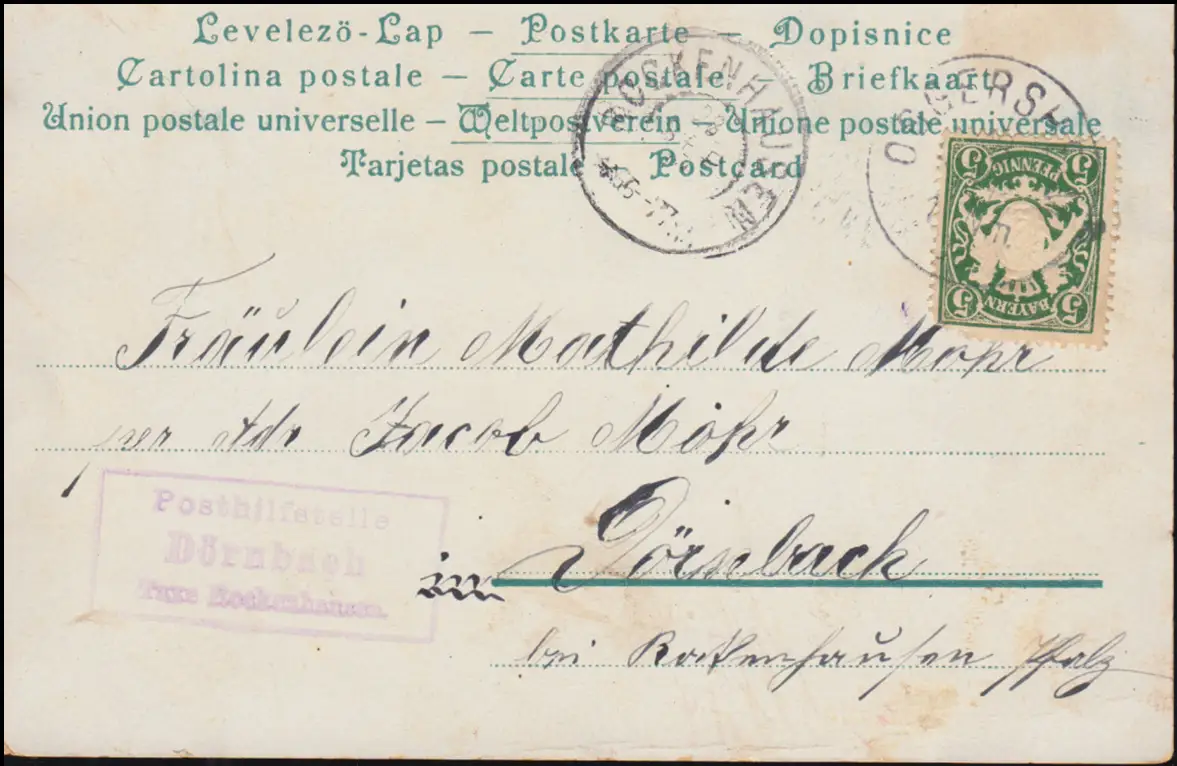 Levelezö-Lap – Postkarte – Dopisnice
Cartolina postale – Carte postale – Briefkaart
Union postale universelle – Weltpostverein – Unione postale universale
Tarjetas postale Postcard
ROCKENHAUSEN
OGGERSH
5 5
PFENNIG
BAYERN
5 5
Fräulein Mathilde Mohr
per Adr Jacob Mohr
Posthilfstelle
Dörnbach
Taxe Rockenhausen.
in Dörnbach
bei Rockenhausen Pfalz